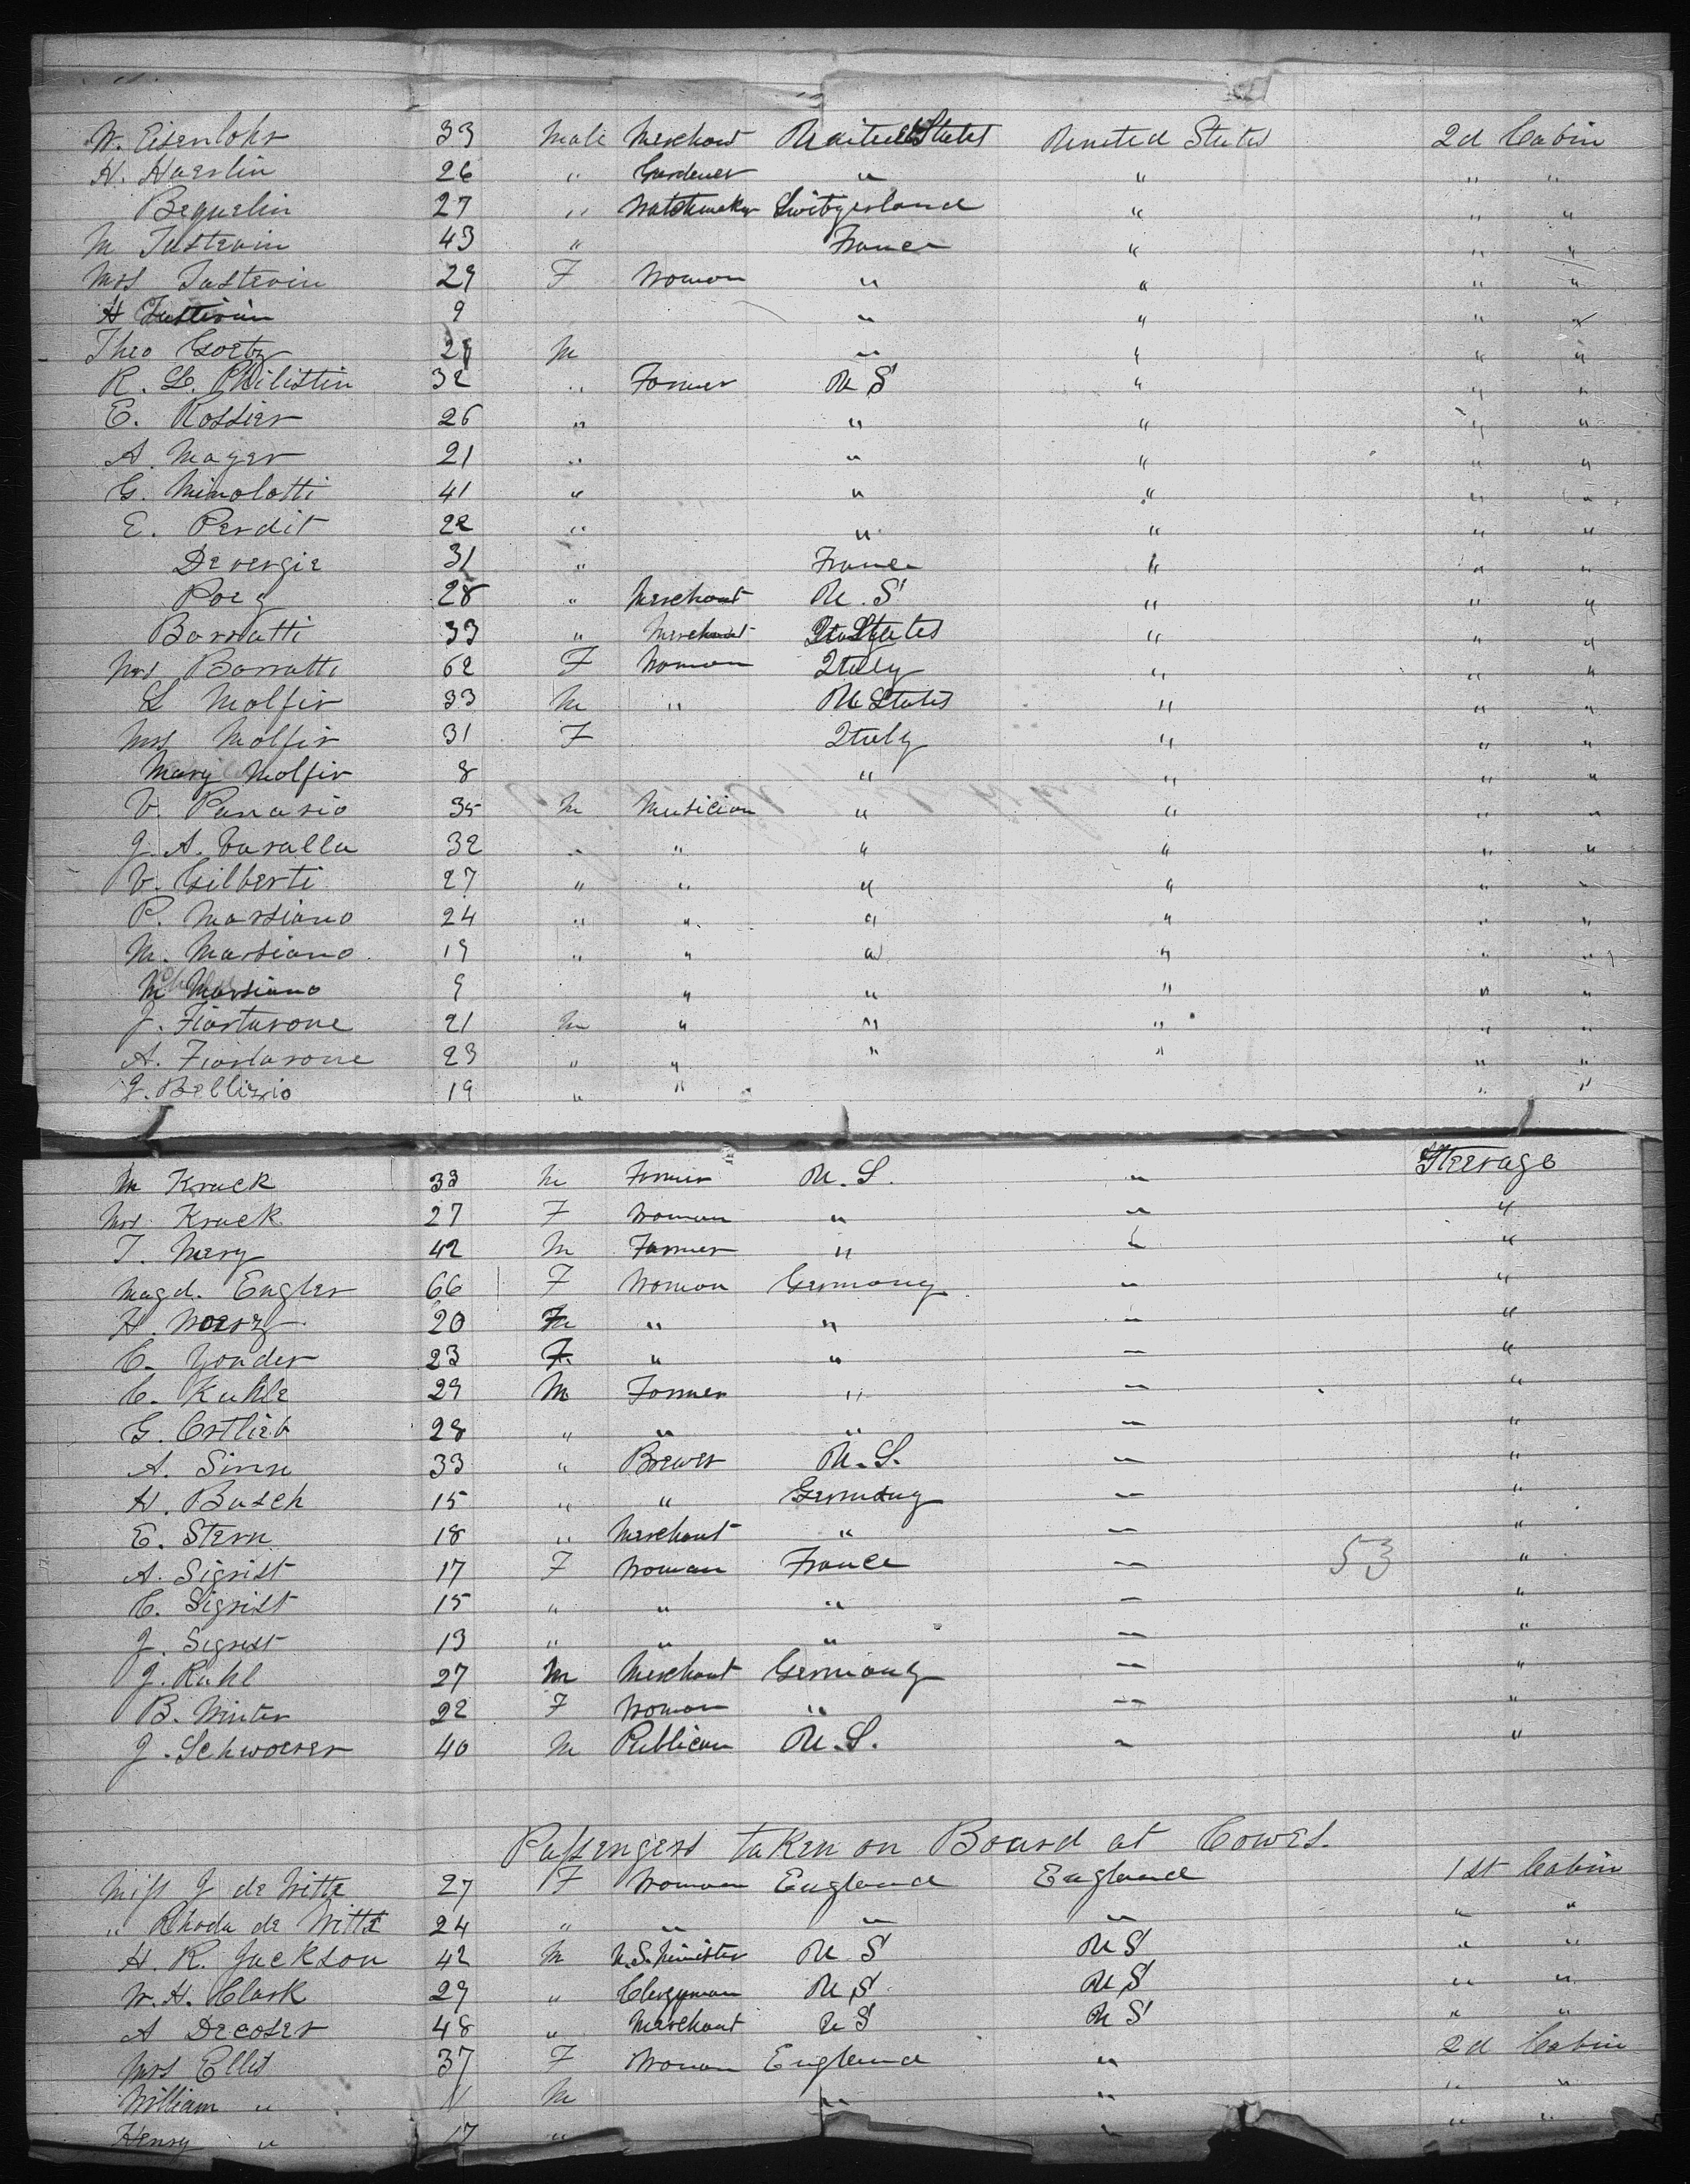 W. Eisenlohr 33 Male Merchant United States United States 2d Cabin
H. Haerlin 26 " Gardener " " " "
Bequelin 27 " Watchmaker Switzerland " " "
M Tastevin 43 " France " " "
Mrs Tastevin 29 F Woman " " " "
H Tastevin 9 " " " "
Theo Goetz 28 M " " " "
R. L. Philistin 32 " Farmer U S " " "
E. Rossier 26 " " " " "
A. Mayer 21 " " " " "
G. Minolotti 41 " " " " "
E. Perdit 22 " " " " "
Devergie 31 " France " " "
28 " Merchant U. S " " "
Barratti 33 " Merchant States " " "
Mrs Barratti 62 F Woman Italy " " "
L Molfir 33 M " U States " " "
Mrs Molfir 31 F Italy " " "
Mary Molfir 8 " " " "
V. Panario 35 M Musician " " " "
J. A. Varalla 32 " " " " " "
V. Gilberti 27 " " " " " "
P. Marsiano 24 " " " " " "
M. Marsiano 19 " " " " " "
M Marsiano 9 " " " " "
J. Fiortarone 21 M " " " " "
A. Fiortarone 23 " " " " " "
J. Bellizio 19 " " " "
M Kruck 33 M Farmer U. S. " Steerage
Mrs Kruck 27 F Woman " " "
T. Mery 42 M Farmer " " "
Magd. Engler 66 F Woman Germany " "
H. Woerz 20 " " " "
C. Yonder 23 F. " " " "
C. Kuhle 29 M Farmer " " "
G. Ortlieb 28 " " " " "
A. Sinn 33 " Brewer U. S. " "
H. Busch 15 " " Germany " "
E. Stern 18 " Merchant " " "
A. Sigrist 17 F Woman France " 53 "
C. Sigrist 15 " " " " "
J. Sigrist 13 " " " " "
J. Ruhl 27 M Merchant Germany " "
B. Winter 22 F Woman " " "
J. Schwoerer 40 M Publican U. S. " "
Passengers taken on Board at Cowes.
Miss J de Witte 27 F Woman England England 1st Cabin
" Rhoda de Witte 24 " " " " " "
H. R. Jackson 42 M U.S. Minister U. S U S " "
W. H. Clark 29 " Clergyman U S. U S " "
A Decoser 48 " Merchant U S U S " "
Mrs Ellis 37 F Woman England " 2d Cabin
William " 11 M " " " "
Henry " 17 " " " "